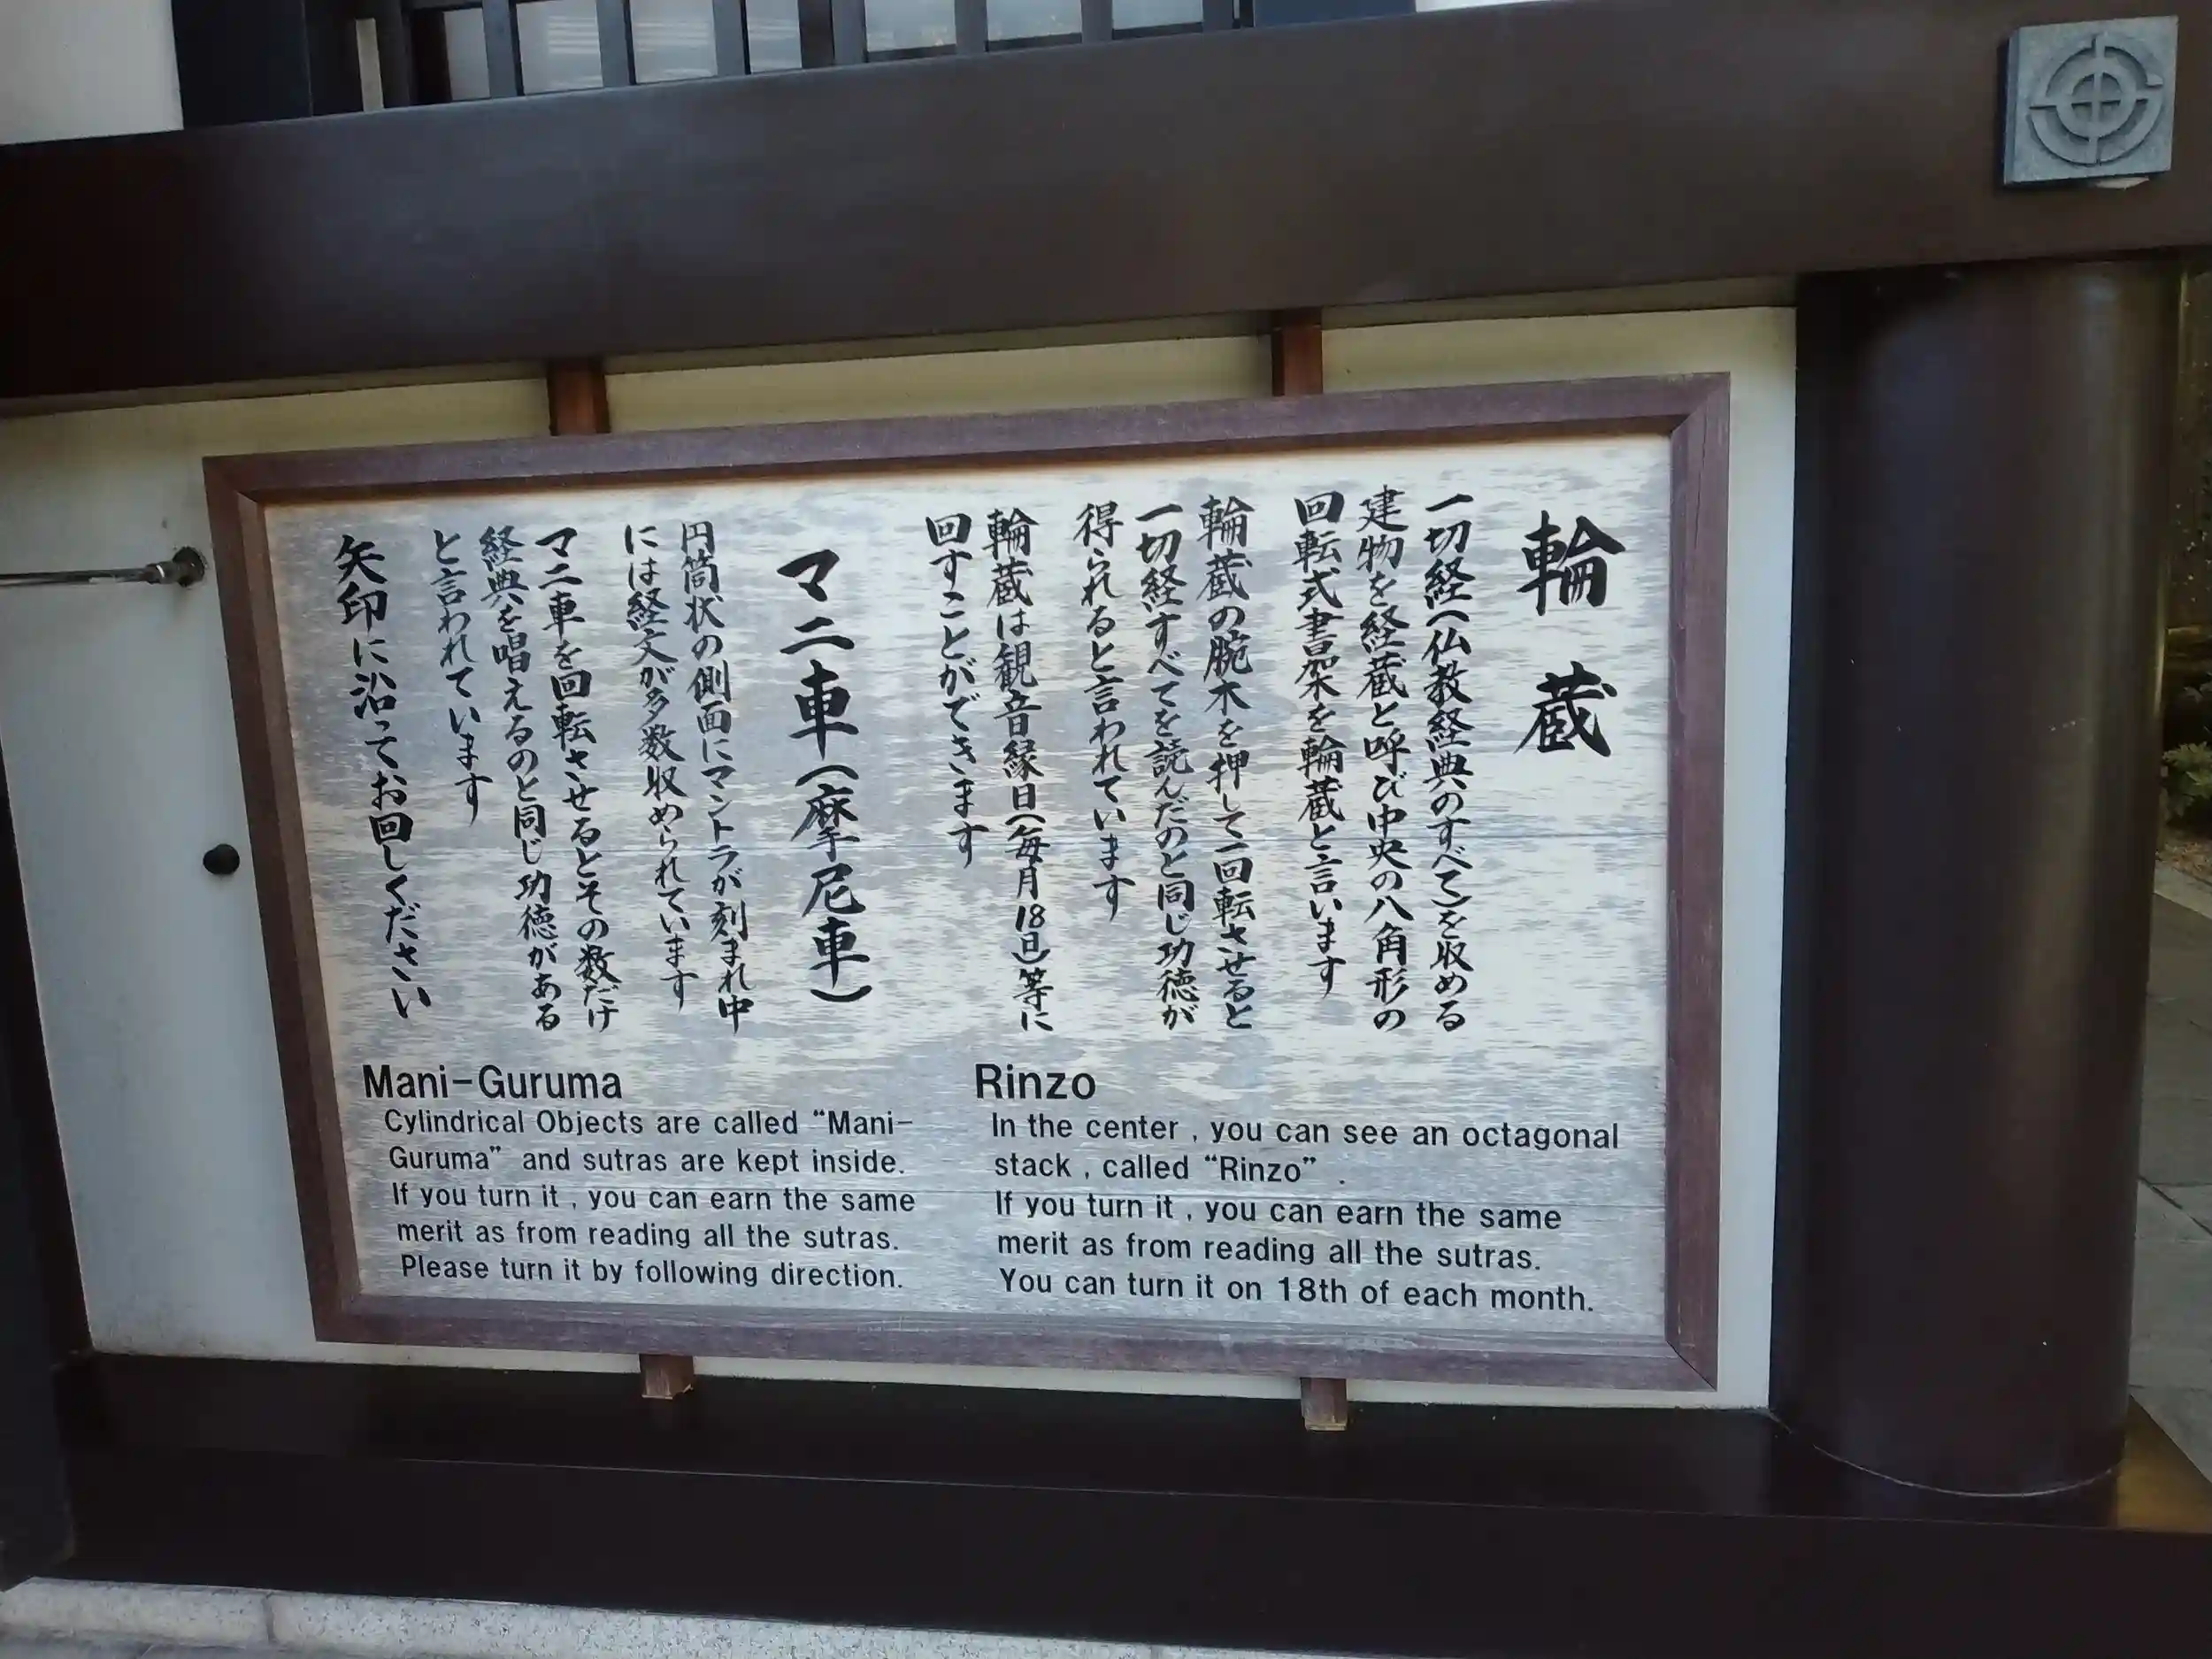 輪蔵
一切経(仏教経典のすべて)を収める
建物を経蔵と呼び中央の八角形の
回転式書架を輪蔵と言います
輪蔵の腕木を押して一回転させると
一切経すべてを読んだのと同じ功徳が
得られると言われています
輪蔵は観音縁日(毎月18日)等に
回すことができます
マニ車(摩尼車)
円筒状の側面にマントラが刻まれ中
には経文が多数収められています
マニ車を回転させるとその数だけ
経典を唱えるのと同じ功徳がある
と言われています
矢印に沿ってお回しください
Rinzo
In the center , you can see an octagonal
stack , called “Rinzo” .
If you turn it , you can earn the same
merit as from reading all the sutras.
You can turn it on 18th of each month.
Mani-Guruma
Cylindrical Objects are called “Mani-
Guruma” and sutras are kept inside.
If you turn it , you can earn the same
merit as from reading all the sutras.
Please turn it by following direction.